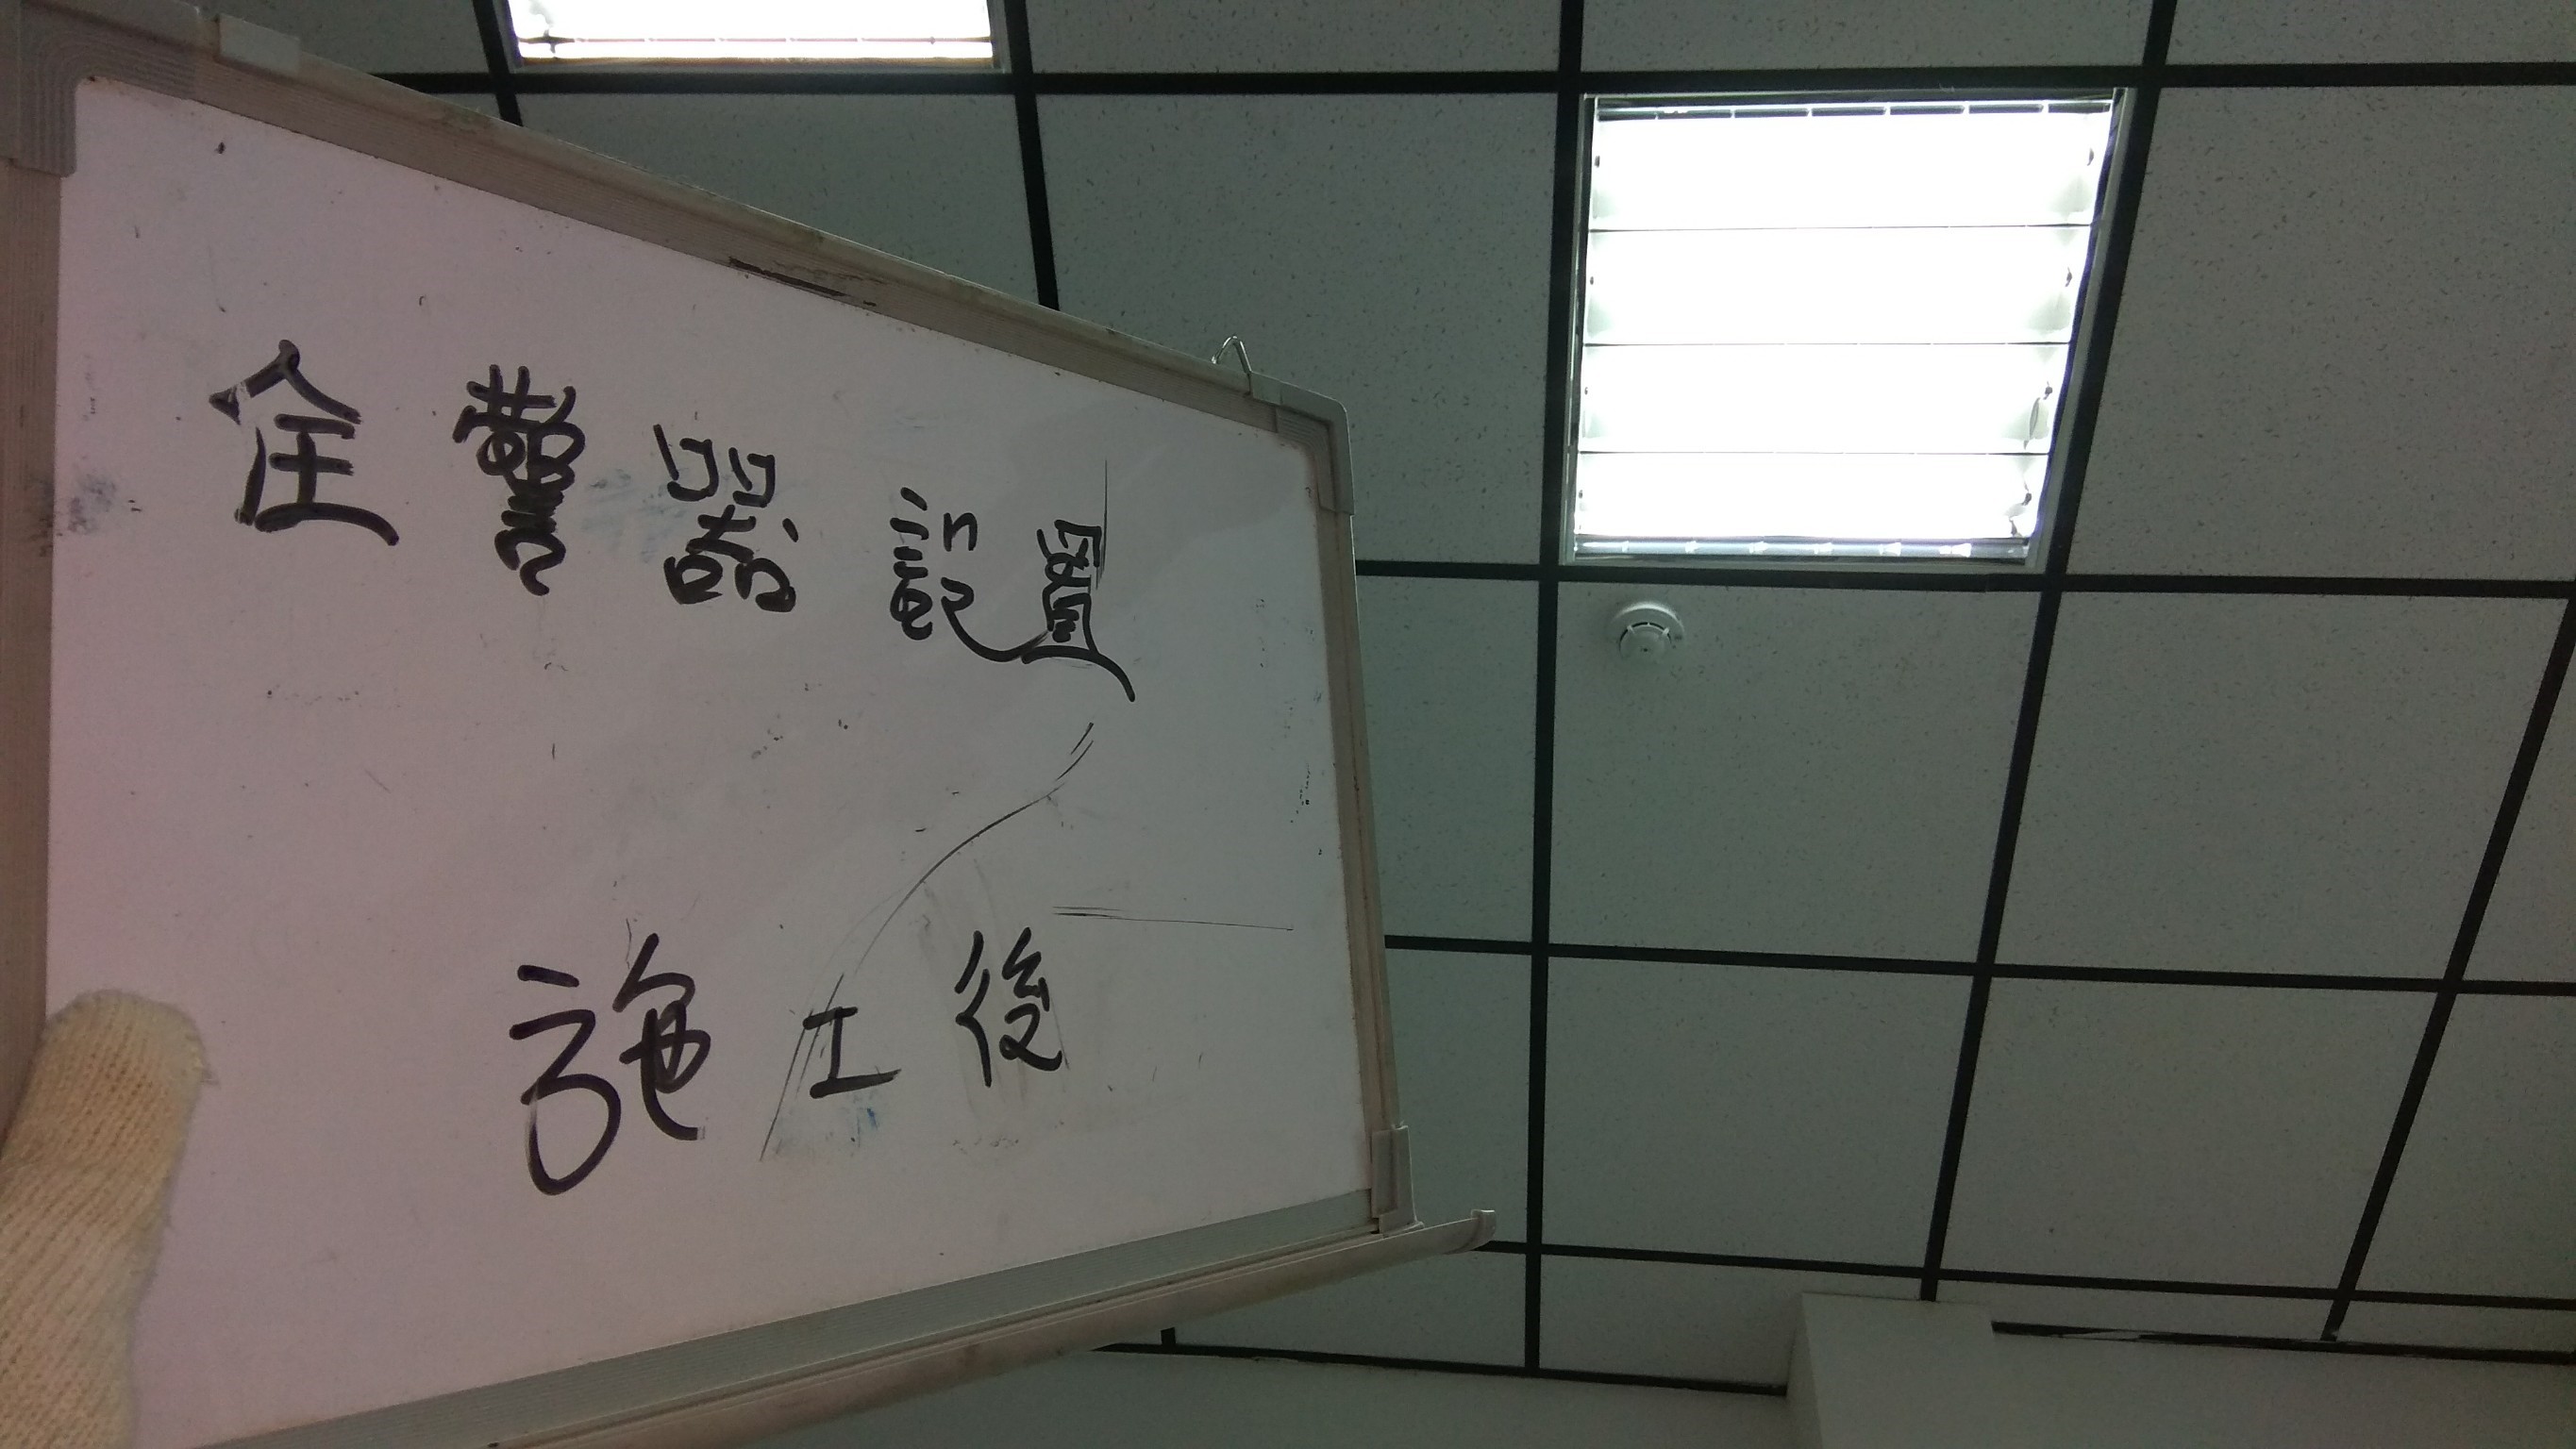 全警器設置
施工後